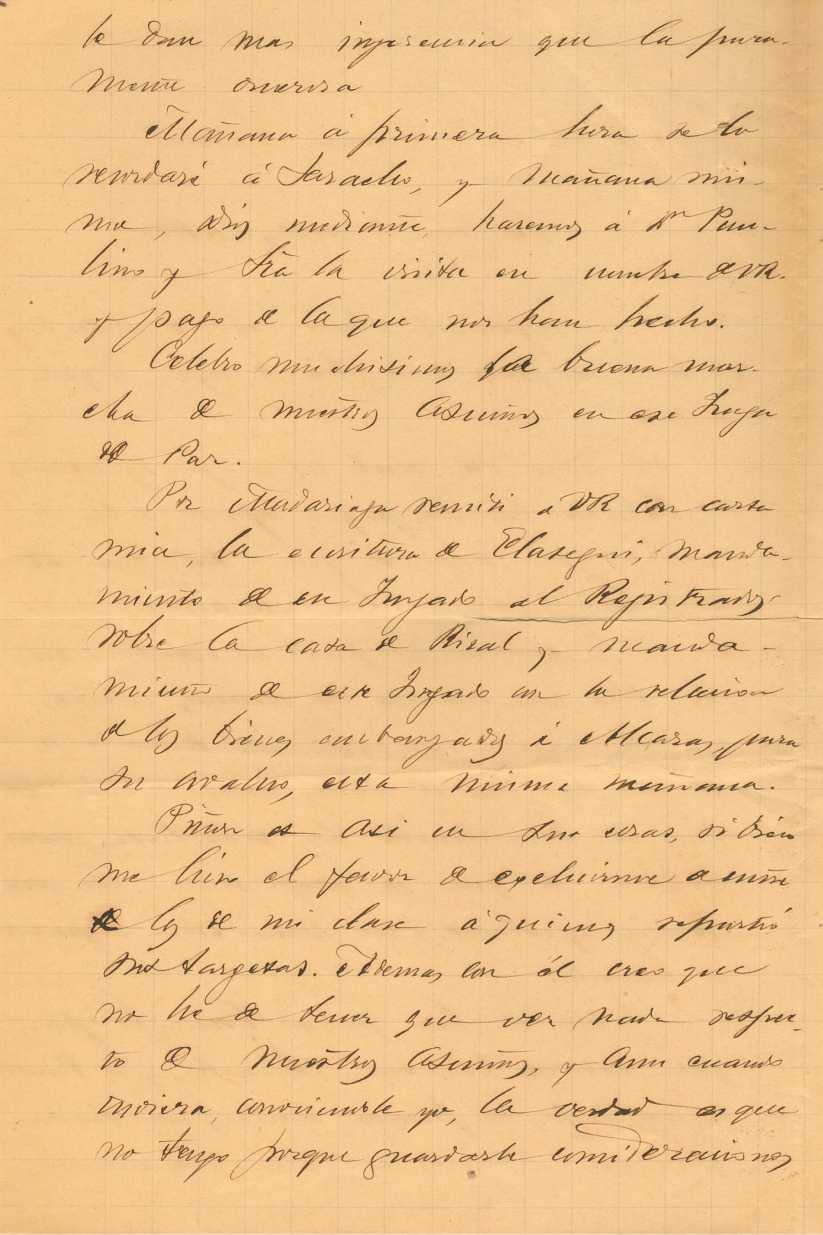 le dan mas ingerencia que la pura-
mente onerosa
Mañana á primera hora se lo
recordaré á Saracho, y mañana mis-
mo, Dios mediante, haremos á Dn Pau-
lino y Sra la visita en nombre de VR.
y pago de la que nos han hecho.
Celebro muchisimo la buena mar-
cha de nuestros asuntos en ese Juzgº
de Paz.
Por Madariaga remití a VR con carta
mia, la escritura de Elasegui, manda-
miento de ese Juzgado al Registrador
sobre la casa de Rizal y manda-
miento de ese Juzgado con la relacion
de los bienes embargados á Alcaraz, para
su avaluo, esta misma mañana.
Piñon es asi en sus cosas, si bien
me hizo el favor de excluirme
de los de mi clase á quienes repartió
sus targetas. Ademas con él creo que
no he de tener que ver nada respec-
to de nuestros asuntos, y aun cuando
tuviera, conociendole yo, la verdad es que
no tengo porque guardarle consideraciones